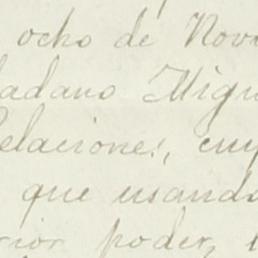 ocho de Nov
adano Migu
elaciones, cuy
que usando
rior poder, l